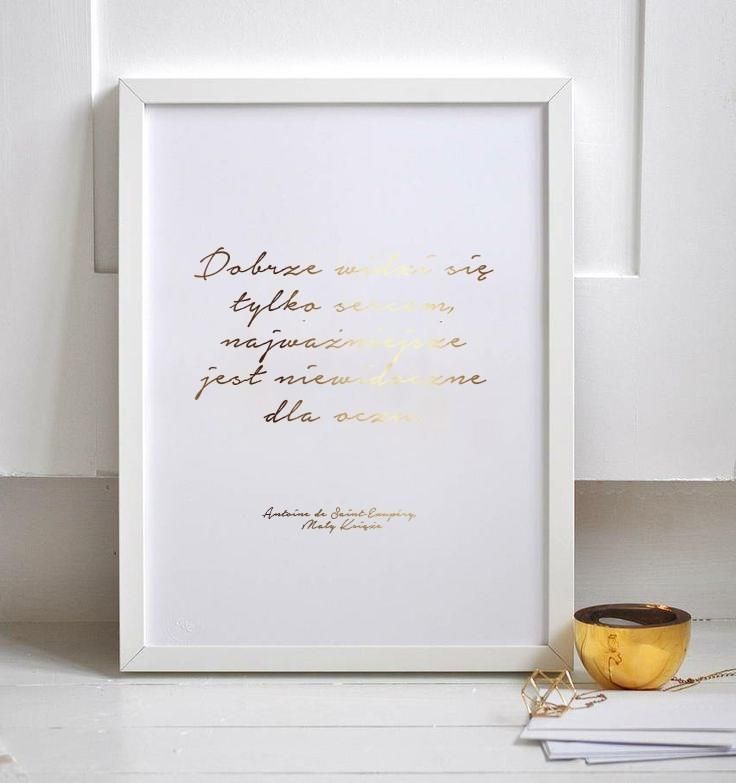 Dobrze widzi się
tylko sercem,
najważniejsze
jest niewidoczne
dla oczu.
Antoine de Saint-Exupéry,
Mały Książe